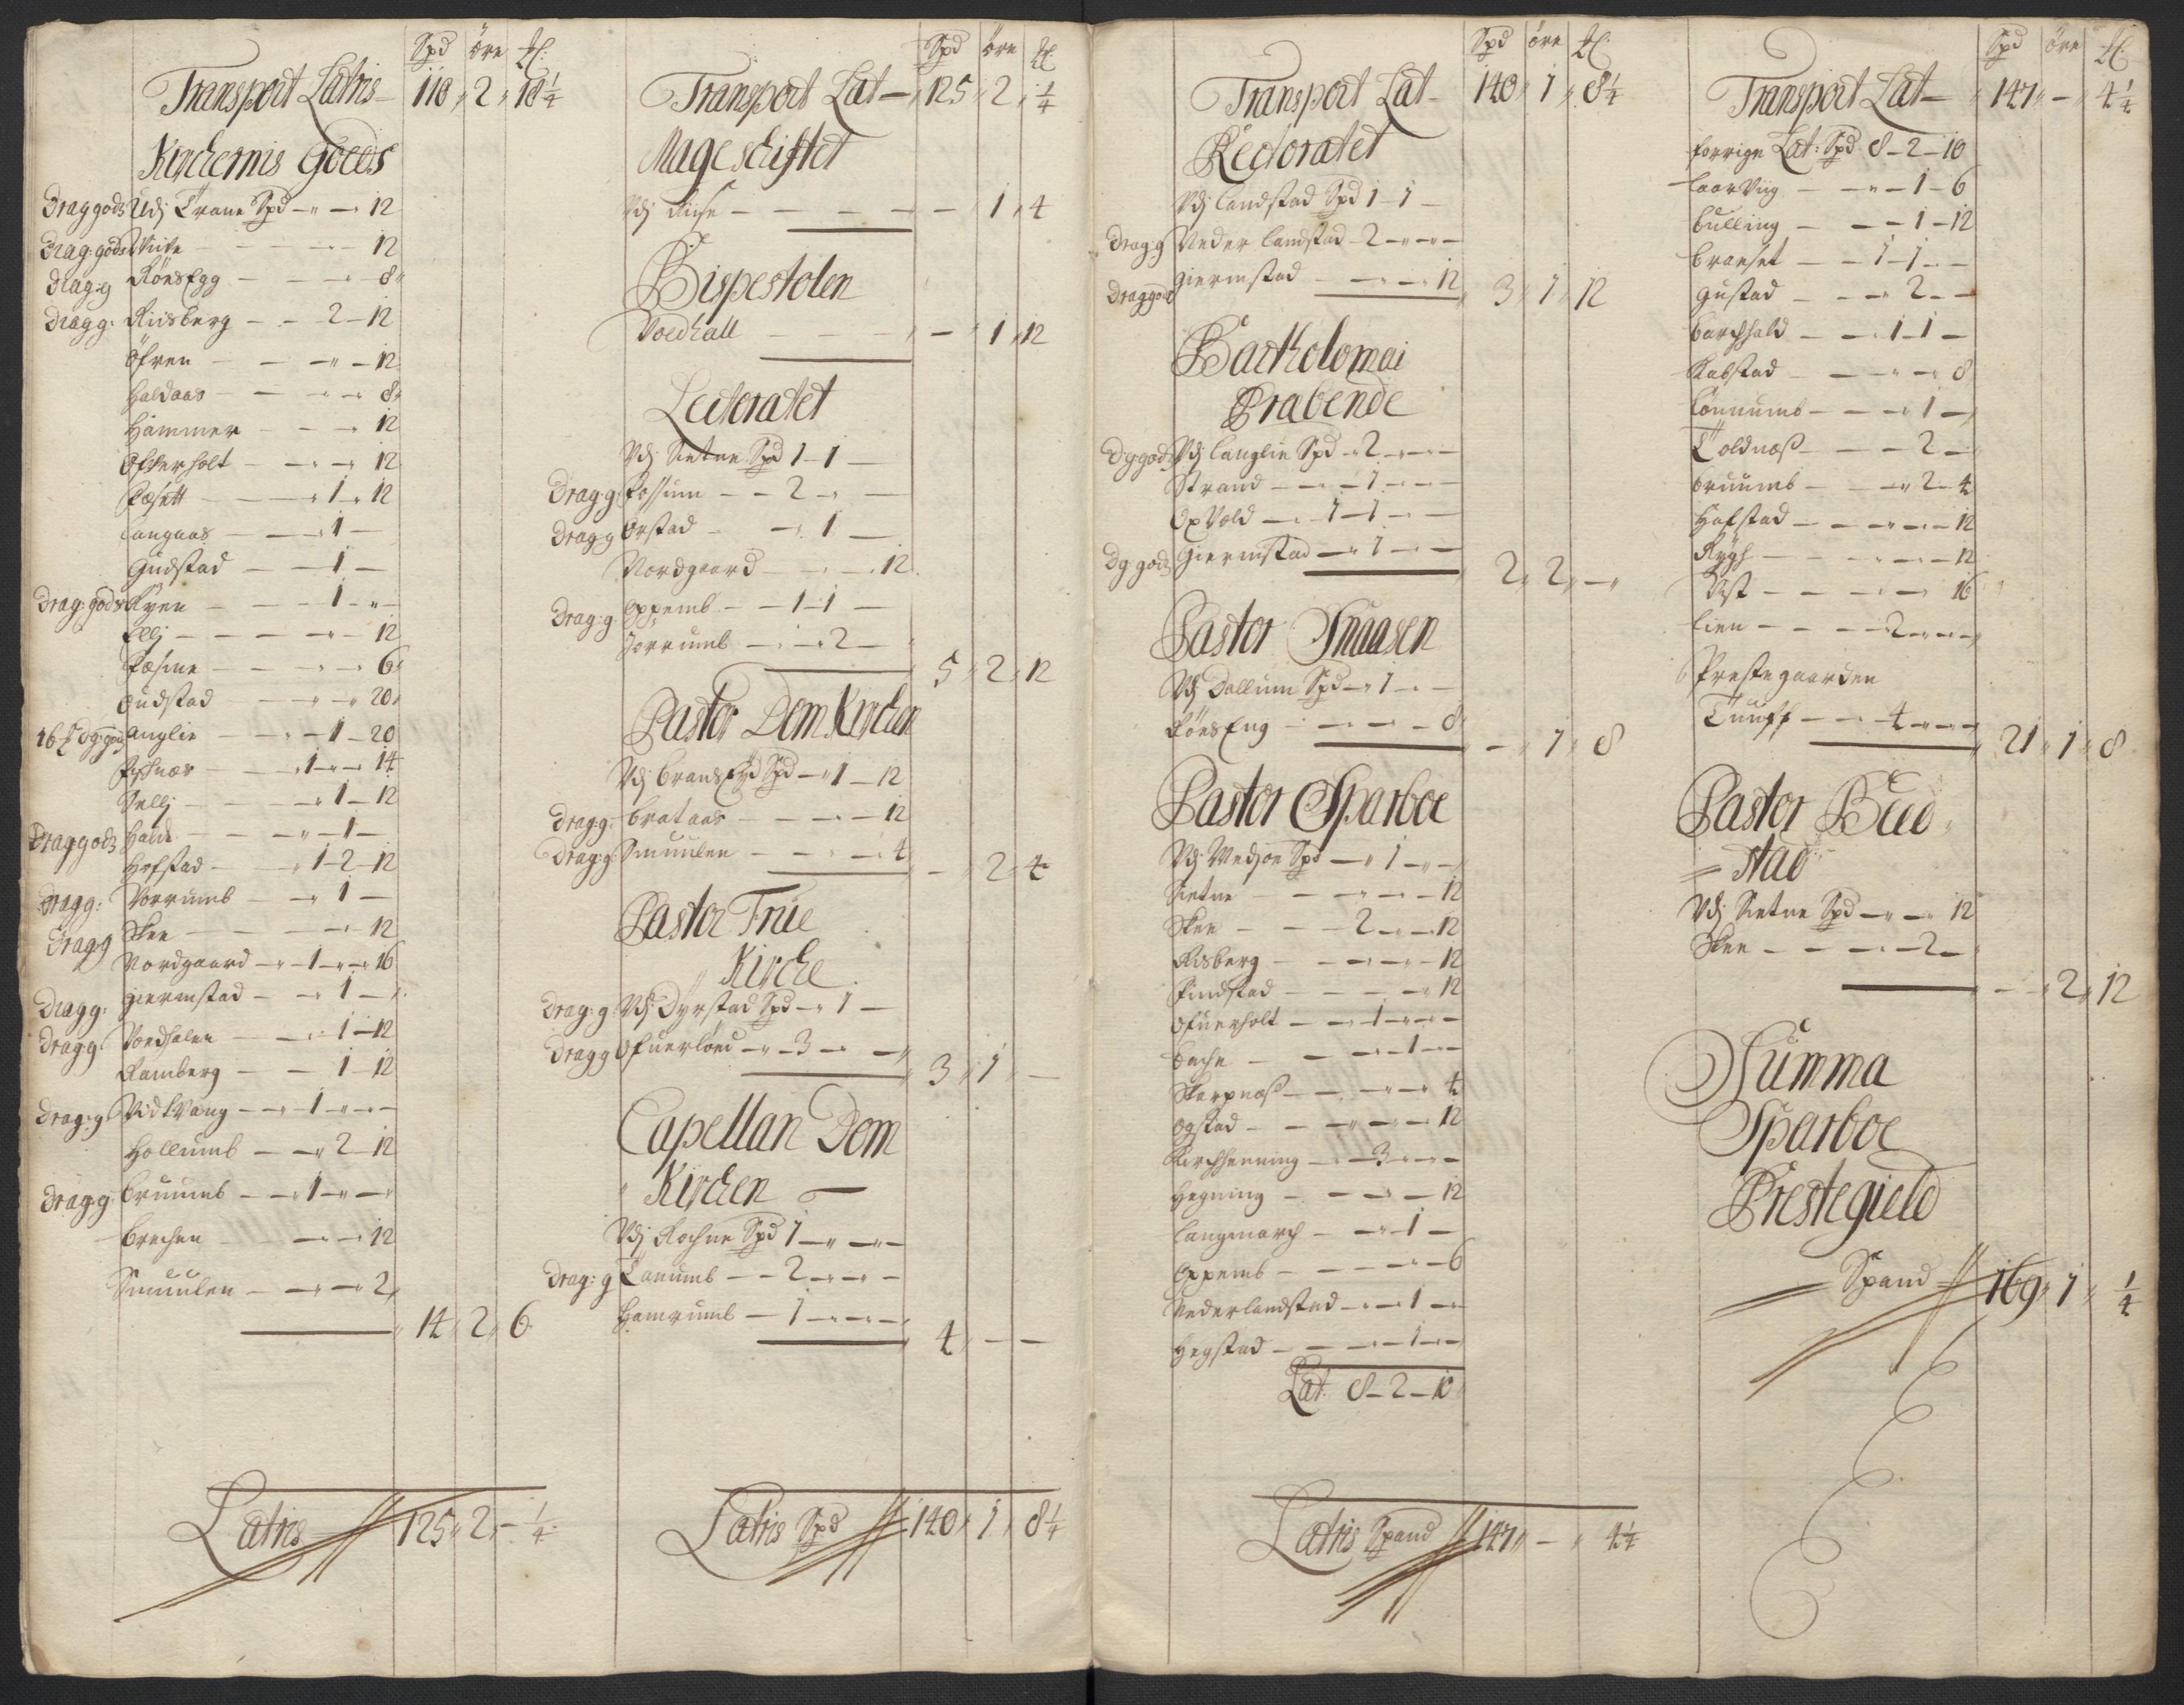 Spd öre
Transport Latris 110 2 18 1/4
Kirchernis Goeds
Draggods Udj Trane Spd - - 12
Drag: gods Viite - - 12
Drag:g RönsEgg - - 8
Dragg: Riisberg - - 2 - 12
Öfren - - 12
Haldaas - - 8
Hammer - - 12
Ofverholt - - 12
Fæsett - - 1 - 12
Langaas - - 1 -
Gudstad - - 1 -
Drag: gods Ryen - - 1 - -
Ellj - - 12
Fæsme - - 6
Gudstad - - 20
Langlie - - 1 - 20
Fishnæs - - 1 - 14
Sellj - - 1 - 12
Draggods - - 1 -
Hofstad - 1 - 2 - 12
Dragg: Vorrumb - - 1 -
Dragg Skee - - 12
Nordgaard - 1 - 16
Dragg: Giermstad - - 1 -
Dragg Voedhalen - - 1 - 12
Ramberg - - 1 - 12
Drag:g Vidtvang - - 1 - -
Hollumb - - 2 - 12
Drag:g Bruumb - - 1 - -
Brechen - - 12
Smuulen - - 2
14 2 6
Latris 125 2 - 1/4
Spd öre
Transport Lat - 125 2 1/4
Mageschiftet
Vdj Riise - - - - 1 4
Bispestolen
Voedhall - - 1 12
Lectoratet
Vdj Sætne Spd 1 - 1 -
Drag:g Fossum - - 2 - -
Dragg Örstad - - 1 -
Nordgaard - - 12
Drag:g: Oppemb - - 1 - 1 -
Jorrumb - - 2 -
5 2 12
Pastor Dom Kirchen
Vdj Brandseyd Spd - 1 - 12
Drag:g: Brataas - - 12
Drag:g: Smuulen - - 4
- 2 4
Pastor Frue
Kirche
Drag: g: Vdj Dyrstad Spd - 1 -
Dragg Ofuerloed - 3 - -
3 1 -
Capellan Dom
Kirchen -
Vdj Rochne Spd 1 - - -
Drag: g Lanumb - - 2 - - -
Hamrumb - 1 - - -
4 - -
Latris Spd 140 1 8 1/4
Spd öre
Transport Lat - 140 1 8 1/4
Rectoratet
Vdj Landstad Spd 1 - 1 -
Dragg Neder Landstad - 2 - - -
Draggods Giermstad - - 12 3 1 12
Bartholomæi
Præbende
Dggods Vdj Langlie Spd - 2 - - -
Strand - - 1 - - -
OpVold - - 1 - 1 - -
Dg gods Giermstad - 1 - - 2 2 -
Pastor Snaasen
Vdj Dallum Spd - 1 - -
RönsEng - - - 8
- 1 8
Pastor Sparboe
Vdj Medjoe Spd - 1 - -
Sætne - - 12
Skee - - 2 - 12
Risberg - - 12
Findstad - - 12
Ofuerholt - - 1 - - -
Bache - - - 1 - -
Skerpnæs - - 4
Ogstad - - 12
Kirchhenning - - 3 - - -
Hegning - - - 12
Langmarch - - 1 -
Oppemb - - - 6
Nederlandstad - - 1 -
Hegstad - - - 1 - -
Lat 8 - 2 - 10
Latris Spand 147 - 4 1/4
Spd öre
Transport Lat - 147 - 4 1/4
forrige Lat: Spd 8 - 2 - 10
LaarViig - - 1 - 6
Bulling - - 1 - 12
Branset - - 1 - 1 - -
Gustad - - 2 - -
Barchhald - - 1 - 1 -
Rabstad - - 8
Lönnumb - - 1 -
Toldnæs - - 2 -
Bruumb - - 2 - 4
Hafstad - - 12
Rygh - - 12
Vist - - 16
Lien - - 2 - - -
Prestegaarden
Tuuff - - 4 - - - 21 1 8
Pastor Bud
= stad
Vdj Sætne Spd - - 12
Skee - - - 2 -
- 2 12
Summa
Sparboe
Prestegield
Spand 169 1 1/4